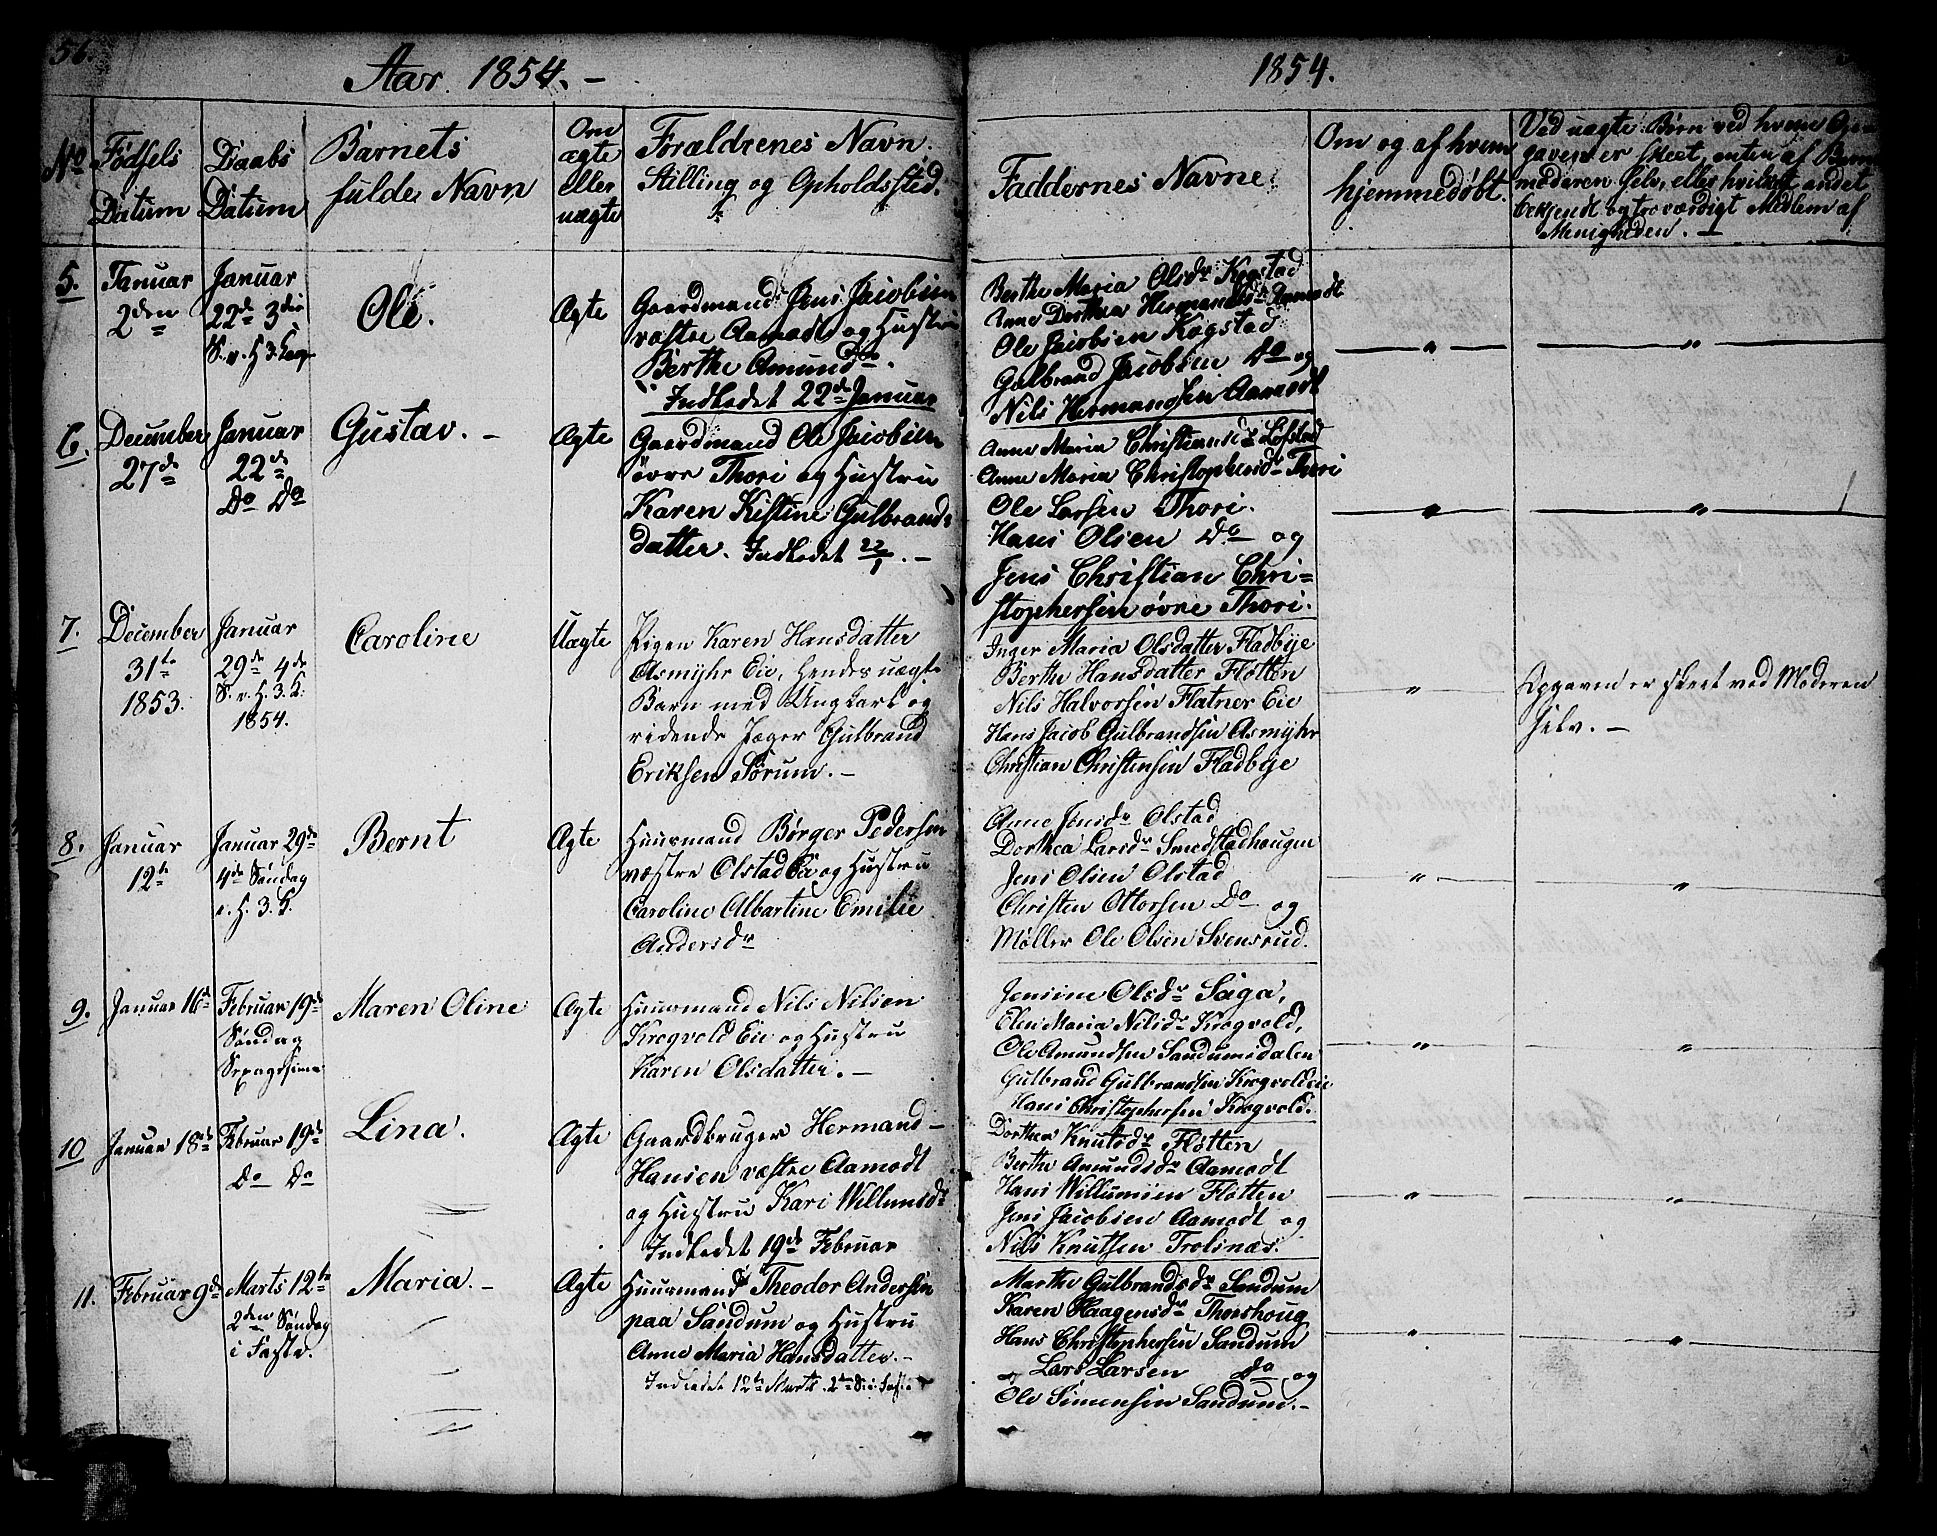 56.
Aar 1854. –
No
Fødsels
Datum
Daabs
Datum
Barnets
fulde Navn
Om
ægte
eller
uægte
Forældrenes Navn.
Stilling og Opholdssted.
5.
Januar
2den
Januar
22de 3die
S. e. H. 3. K.
Ole.
Ægte
Gaardmand Jens Jacobsen
væstre Aamodt og Hustru
Berthe Amundsdr.
Indledet 22de Januar
6.
December
27de
Januar
22de
Do Do
Gustav. –
Ægte
Gaardmand Ole Jacobsen
øvre Thori og Hustru
Karen Kistine Gulbrands-
datter. Indledet 22/1. –
7.
December
31te
1853.
Januar
29de 4de
S. e. H. 3. K.
1854.
Caroline
Uægte
Pigen Karen Hansdatter
Asmyhr Eie, hendes uægte
Barn med Ungkarl og
ridende Jæger Gulbrand
Eriksen Sørum. –
8.
Januar
12te
Januar 29de
4de Søndag
e. H. 3. K.
Bernt
Ægte
Huusmand Børger Pedersen
væstre Olstad Eie og Hustru
Caroline Albartine Emilie
Andersdr
9.
Januar 16de
Februar 19de
Søndag
Sexagesima
Maren Oline
Ægte
Huusmand Nils Nilsen
Krogvold Eie og Hustru
Karen Olsdatter. –
10
Januar 18de
Februar 19de
Do Do
Lina.
Ægte
Gaardbruger Hermand
Hansen væstre Aamodt
og Hustru Kari Willumsdr
Indledet 19de Februar
11.
Februar 9de
Marts 12te
2den Søndag
i Faste.
Maria. –
Ægte
Huusmand Theodor Andersen
paa Sandum og Hustru
Anne Maria Hansdatter. –
Indledet 12te Marts 2den S. i Faste
1854.
Faddernes Navne.
Om og af hvem
hjemmedøbt.
Ved uægte Børn ved hvem Op-
gaven er skeet, enten af Barne-
moderen selv, eller hvilket andet
bekjendt og troværdigt Medlem af
Menigheden. –
Berthe Maria Olsdr Kogstad
Anne Dorthea Hermandsdr Aamodt
Ole Jacobsen Kogstad
Gulbrand Jacobsen Do og
Nils Hermandsen Aamodt
" "
Anne Maria Christiansdr Lofstad
Anne Maria Christophersdr Thori
Ole Larsen Thori.
Hans Olsen Do og
Jens Christian Chri=
stophersen øvre Thori.
" "
Inger Maria Olsdatter Fladbye
Berthe Hansdatter Fløtten
Nils Halvorsen Flatner Eie
Hans Jacob Gulbrandsen Asmyhr
Christian Christensen Fladbye
"
Opgaven er skeet ved Moderen
selv. –
Anne Jensdr Olstad
Dorthea Larsdr Smedstadhougen
Jens Olsen Olstad
Christen Ottersen Do og
Møller Ole Olsen Svensrud.
" "
Jensine Olsdr Saga,
Olea Maria Nilsdr Krogvold,
Ole Amundsen Sandumsdalen
Gulbrand Gulbrandsen Krogvoldeie
Hans Christophersen Krogvold.
" "
Dorthea Knutsdr Fløtten
Berthe Amundsdr Aamodt
Hans Willumsen Fløtten
Jens Jacobsen Aamodt og
Nils Knutsen Trolsnæs.
" "
Marthe Gulbrandsdr Sandum
Karen Haagensdr Thorshoug
Hans Christophersen Sandum
Lars Larsen Do og
Ole Simensen Sandum. –
" "